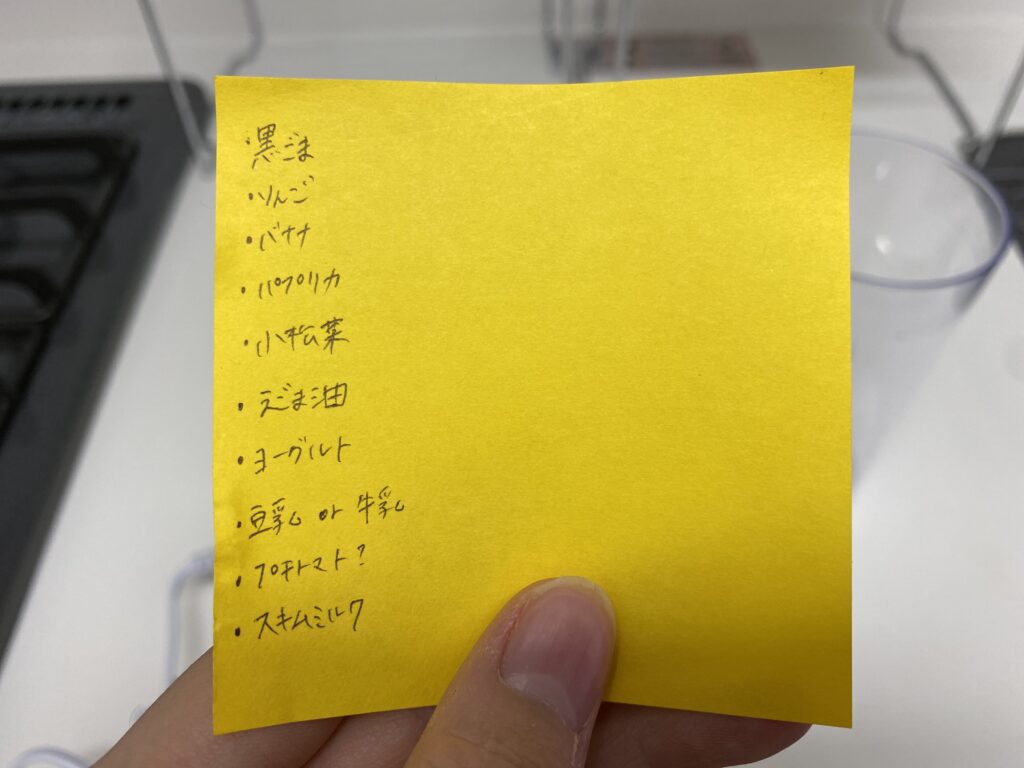 ・黒ごま
・りんご
・バナナ
・パプリカ
・小松菜
・えごま油
・ヨーグルト
・豆乳 or 牛乳
・プチトマト?
・スキムミルク